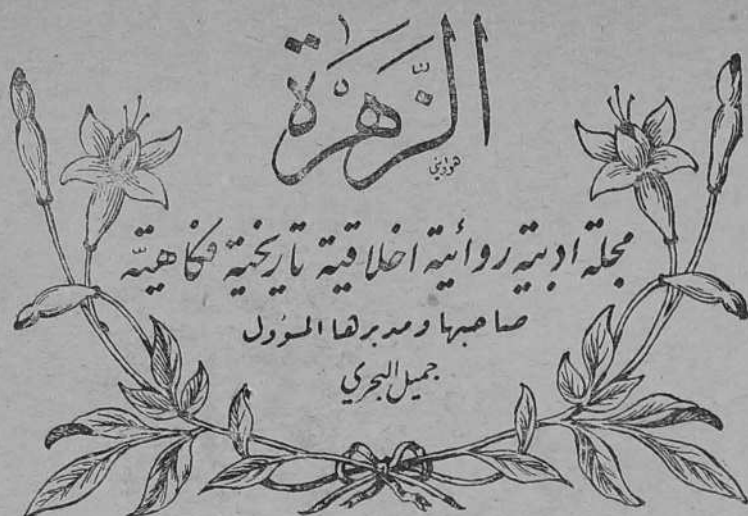 الزَّهْرَة
هواويني
مجلة ادبية روائية اخلاقية تاريخية فكاهية
صاحبها ومديرها المسؤول
جميل البحري